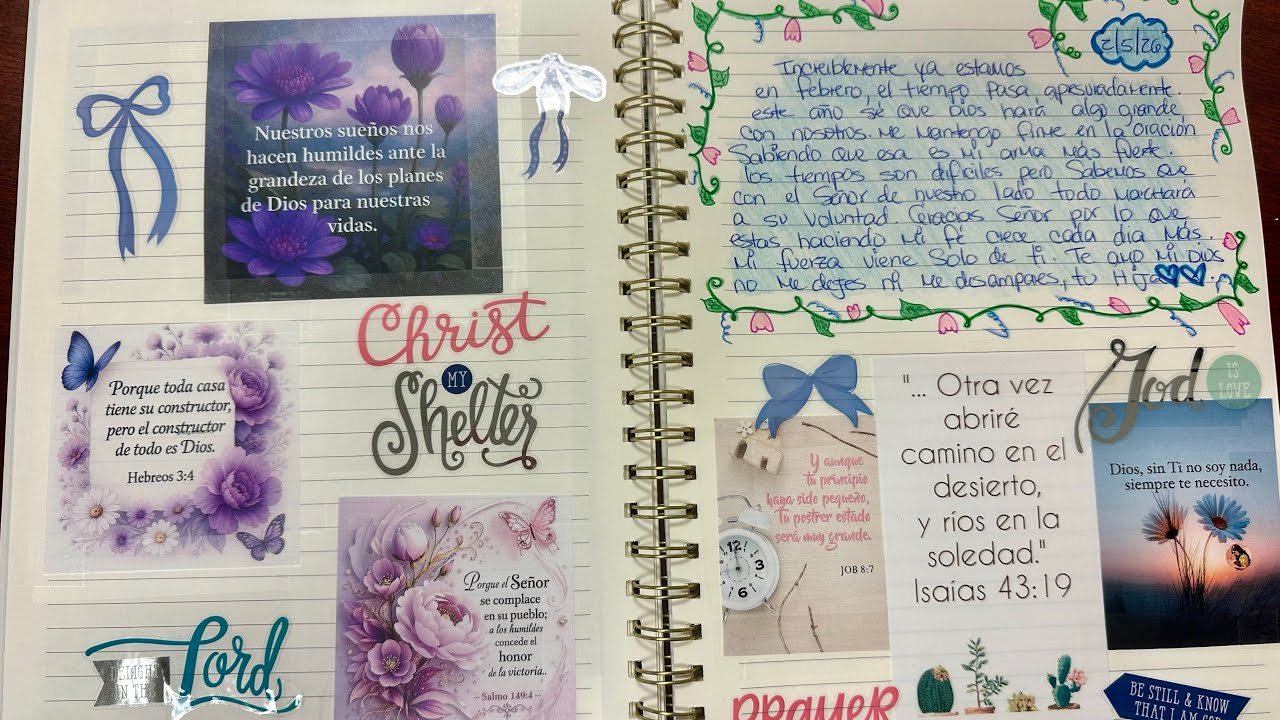 Nuestros sueños nos
hacen humildes ante la
grandeza de los planes
de Dios para nuestras
vidas.
Christ
MY
Shelter
Porque toda casa
tiene su constructor,
pero el constructor
de todo es Dios.
Hebreos 3:4
Porque el Señor
se complace
en su pueblo;
a los humildes
concede el
honor
de la victoria..
- Salmo 149:4 -
DELIGHT
IN THE
Lord
2/5/26
Increiblemente ya estamos
en febrero, el tiempo pasa apresuradamente.
este año se que Dios hará algo grande
con nosotros. Me mantengo firme en la oración
Sabiendo que esa es mi arma más fuerte.
los tiempos son dificiles pero Sabemos que
con el Señor de nuestro lado todo marchará
a su voluntad. Gracias Señor por lo que
estas haciendo mi fé crece cada dia más.
Mi fuerza viene Solo de ti. Te amo mi Dios
no me dejes ni me desampares, tu Hija
God
IS
LOVE
"... Otra vez
abriré
camino en el
desierto,
y ríos en la
soledad."
Isaías 43:19
Y aunque
tu principio
haya sido pequeño,
Tu postrer estado
será muy grande.
JOB 8:7
Dios, sin Ti no soy nada,
siempre te necesito.
PRAYER
BE STILL & KNOW
THAT I AM GOD